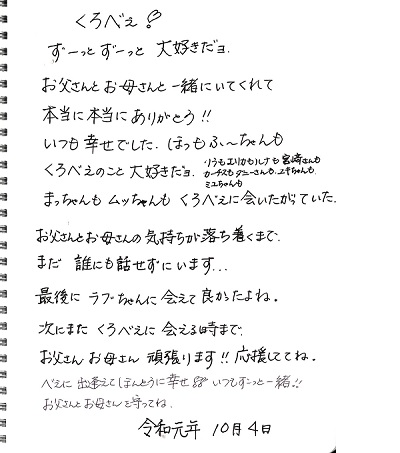 くろべえ!
ずーっとずーっと 大好きだヨ.
お父さんとお母さんと一緒にいてくれて
本当に本当にありがとう!!
いつも幸せでした. ほっもふ〜ちゃんも
くろべえのこと 大好きだヨ. りうもエリカもルナも宮崎さんも
カーチスもダニーさんも.ユキちゃんも
ミエちゃんも
まっちゃんも ムッちゃんも くろべえに会いたがっていた.
お父さんとお母さんの気持ちが落ち着くまで.
まだ 誰にも話せずにいます...
最後に ラブちゃんに会えて良かったよね.
次にまた くろべえに会える時まで.
お父さんお母さん 頑張ります!! 応援しててね.
べえに出逢えてほんとうに幸せ いつもずーっと一緒!!
お父さんとお母さんを守ってね.
令和元年 10月4日